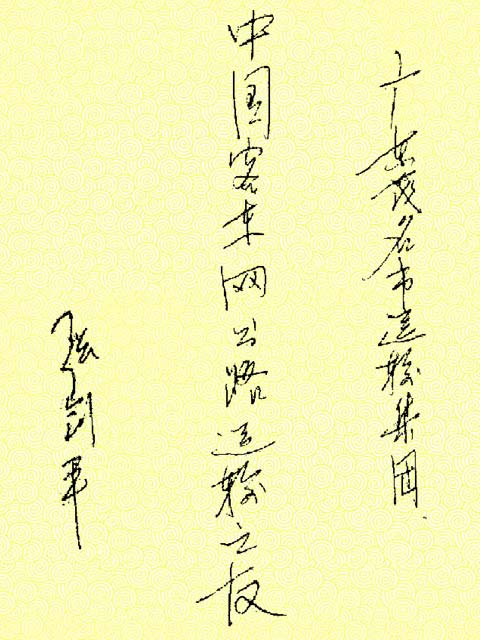 广东茂名市运输集团
中国客车网公路运输之友